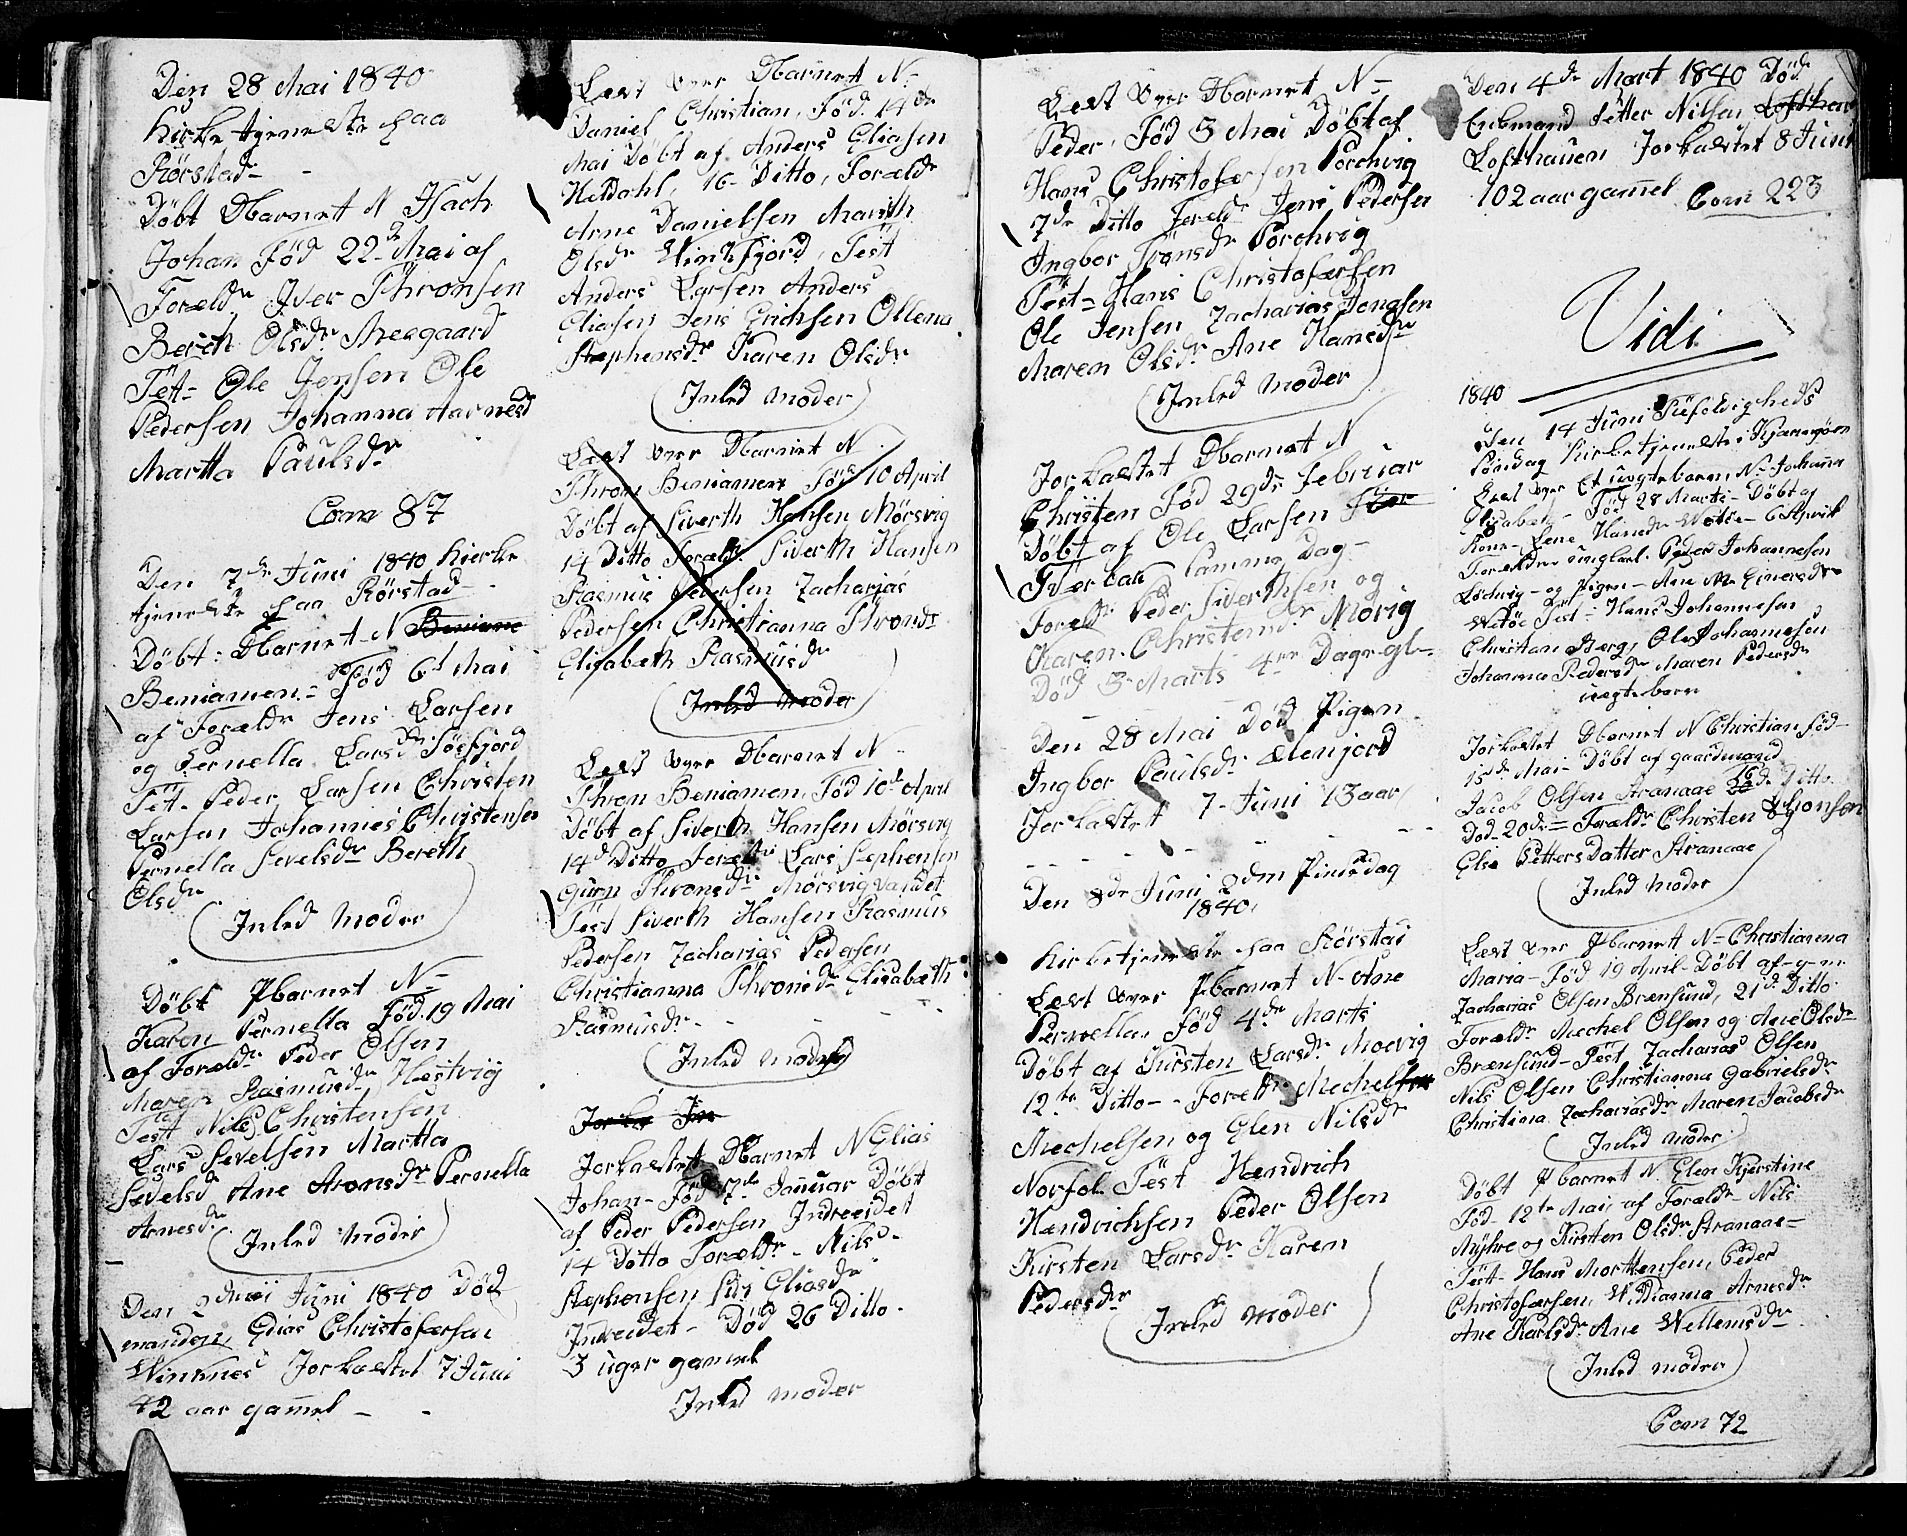 Den 28 Mai 1840
Kirke tjeneste paa
Rörstad
Döbt DBarnet N Isach
Johan Född 22de Mai af
Foræld Iver Thronsen
Bereth Olsdr Aaegaard
Tet- Ole Jensen Ole
Pedersen Johanna Aarnesd
Martta Paulsdr
Com 87
Den 7de Juni 1840 Kierke
tjeneste paa Rörstad
Döbt: DBarnet N Beniame
Beniamen Född 6t Mai
af Forældr Jens Larsen
og Pernella Larsdr Sörfjord
Tet- Peder Larsen Christen
Larsen Johannes Christensen
Pernella Sevelsdr Bereth
Olsdr
Inled Moder
Döbt PBarnet N-
Karen Pernella Föd. 19 Mai
af Foræld Peder Olsen
Maren Rasmusdr Hestvig
Test Nils Christensen
Lars Sevelsen Martta
Sevelsd Ane Aronsdr Pernella
Arnesdr
Inled Moder
Den 2den Juni 1840 Död
manden Elias Christofærsen
Winknes Jorkastet 7 Juni
42 aar gamel
Læst over DBarnet N-
Daniel Christian, Föd. 14de
Mai Döbt af Anders Eliasen
Heldahl, 16- Ditto, Foræld
Arne Danielsen Marith
Olsdr Winkfjord, Test
Anders Larsen Anders
Eliasen Jens Erichsen Ollena
Stephensdr Karen Olsdr
Inled moder
Læst over DBarnet N
Thron Beniamen Föd 10 April
Döbt af Siverth Hansen Mörsvig
14 Ditto Foræld Siverth Hansen
Rasmus Pedersen Zacharias
Pedersen Christianna Throndr
Elisabeth Rasmusdr
Inled Moder
Læst over DBarnet N-
Thron Beniamen, Föd 10d April
Döbt af Siverth Hansen Mörsvig
14d Ditto Foræld Lars Stephensen
Gurn Thronsdr Mörsvig vandet
Test Siverth Hansen Rasmus
Pedersen Zacharias Pedersen
Christianna Thronsdr Elisabeth
Rasmusdr
Inled moder
Jorka
Jorkastet DBarnet N Elias
Johan- Föd 7de Januar Döbt
af Peder Pedersen Indreeidet
14 Ditto Foræld- Nils
Stephensen Siri Eliasdr
Indreeidet- Död 26 Ditto.
3 uger gamel
Inled moder
Læst over DBarnet N-
Peder, Föd 5 Mai Döbt af
Hans Christofærsen Porchvig
7de Ditto Foræld Jens Pedersen
Ingbor Trönsdr Porchvig
Test- Hans Christofærsen
Ole Jensen Zacharias Jonasen
Maren Olsdr Ane Hansdr
Inled moder
Jorkastet DBarnet N
Christen Föd 29de Februar
Döbt af Ole Larsen
Tverbak samme Dag-
Foræld Peder Siverthsen og
Karen Christensdr Mörvig
Död 3 Marts 4re Dage gl-
Den 28 Mai Död Pigen
Ingbor Paulsdr Elvenjord
Jorkastet 7- Juni 13 aar
Den 8de Juni 2den Pinsedag
1840,
Kirketjeneste paa Rörstad
Læst over PBarnet N- Ane
Pernella, Föd 4de Marts
Döbt af Kirsten Larsdr Moevig
12te Ditto- Foræld Mechel
Mechelsen og Elen Nilsdr
Norfol Test Hendrich
Hendrichsen Peder Olsen
Kirsten Larsdr Karen
Pedersdr
Inled moder
Den 4de Mart 1840 Död
Enkemand Petter Nilsen
Lofthauen Jorkastet 8 Juni
102 aar gamel Com 223
Vidi
1840
Den 14 Juni Trefoldigheds
Söndag Kirketjeneste i Kjæringöen
Læst over Et uægtebaren, N- Johanna
Elisabeth- Föd 28 Marts- Döbt af
Kone- Lene Hansdr 6 April
Forældre ungkarl. Peder Johannesen
Lodwig- og Pigen- Ane M. Einersdr
Test- Hans Johannesen
Christian Berg, Ole Johannesen
Johanna Pedersdr Maren Pedersdr
uægtebarn
Jorkastet DBarnet N Christian föd-
15de Mai- Döbt af gaardmand
Jacob Olsen Stranaae 16de Ditto
Död- 20de- Foræld Christen Thonsen
Else Petters Datter Stranaae
Inled moder
Læst over PBarnet N- Christianna
Maria- Föd 19 April- Döbt af- g-m-
Zacharias Olsen Brænsund, 21d Ditto
Foræld Mechel Olsen og Ane Olsdr
Brænsund- Test Zacharias Olsen
Nils Olsen Christianna Gabrielsdr
Christina Zachariasdr Maren Jacobsdr
Inled moder
Döbt PBarnet N. Elen Kjerstine
Föd- 12te Mai, af Foræld- Nils
Myhre og Kirsten Olsdr Stranaae-
Test- Hans Morttensen, Peder
Christofærsen, Willianna Arnesdr
Ane Karlsdr Ane Wellemsdr
Inled moder
Com 72